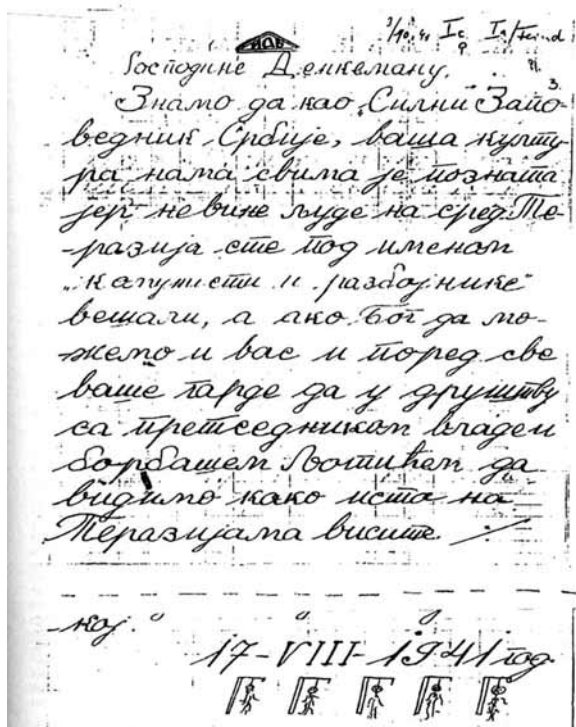 3/10. 41 Ic Ia/Feind
Господине Денкеману.
3.
Знамо да као „Силни Запо-
ведник Србије, ваша култу-
ра нама свима је позната
јер невине људе на сред Те-
-разија сте под именом
и разбојнике“
вешали, а ако Бог да мо-
жемо и вас и поред све
ваше гарде да у друштву
са претседником владе и
Љотићем да
видимо како исто на
Теразијама висите.
-кој. " " "
17-VIII-1941 год.